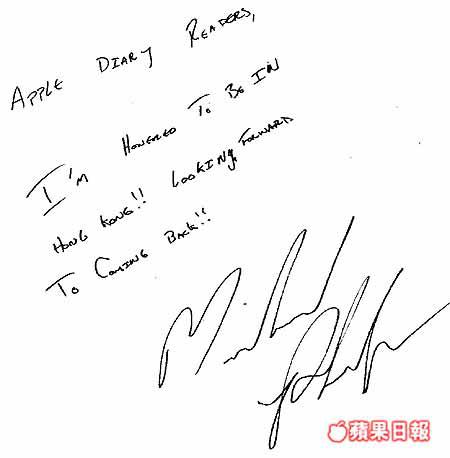 APPLE DIARY READERS,
I'M HONERED TO BE IN
HONG KONG!! LOOKING FORWARD
TO COMING BACK!!
Michael Phelps
蘋果日報